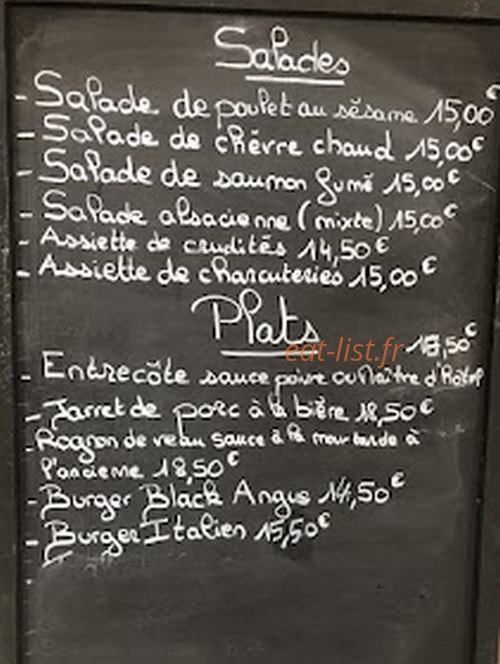 Salades
- Salade de poulet au sésame 15,00€
- Salade de chèvre chaud 15,00€
- Salade de saumon fumé 15,00€
- Salade alsacienne (mixte) 15,00€
- Assiette de crudités 14,50€
- Assiette de charcuteries 15,00€
Plats
eat-list.fr
- Entrecôte sauce poivre ou Maître d'Hôtel
- Jarret de porc à la bière 18,50€
- Rognon de veau sauce à la moutarde à
l'ancienne 18,50€
- Burger Black Angus 14,50€
- Burger Italien 15,50€